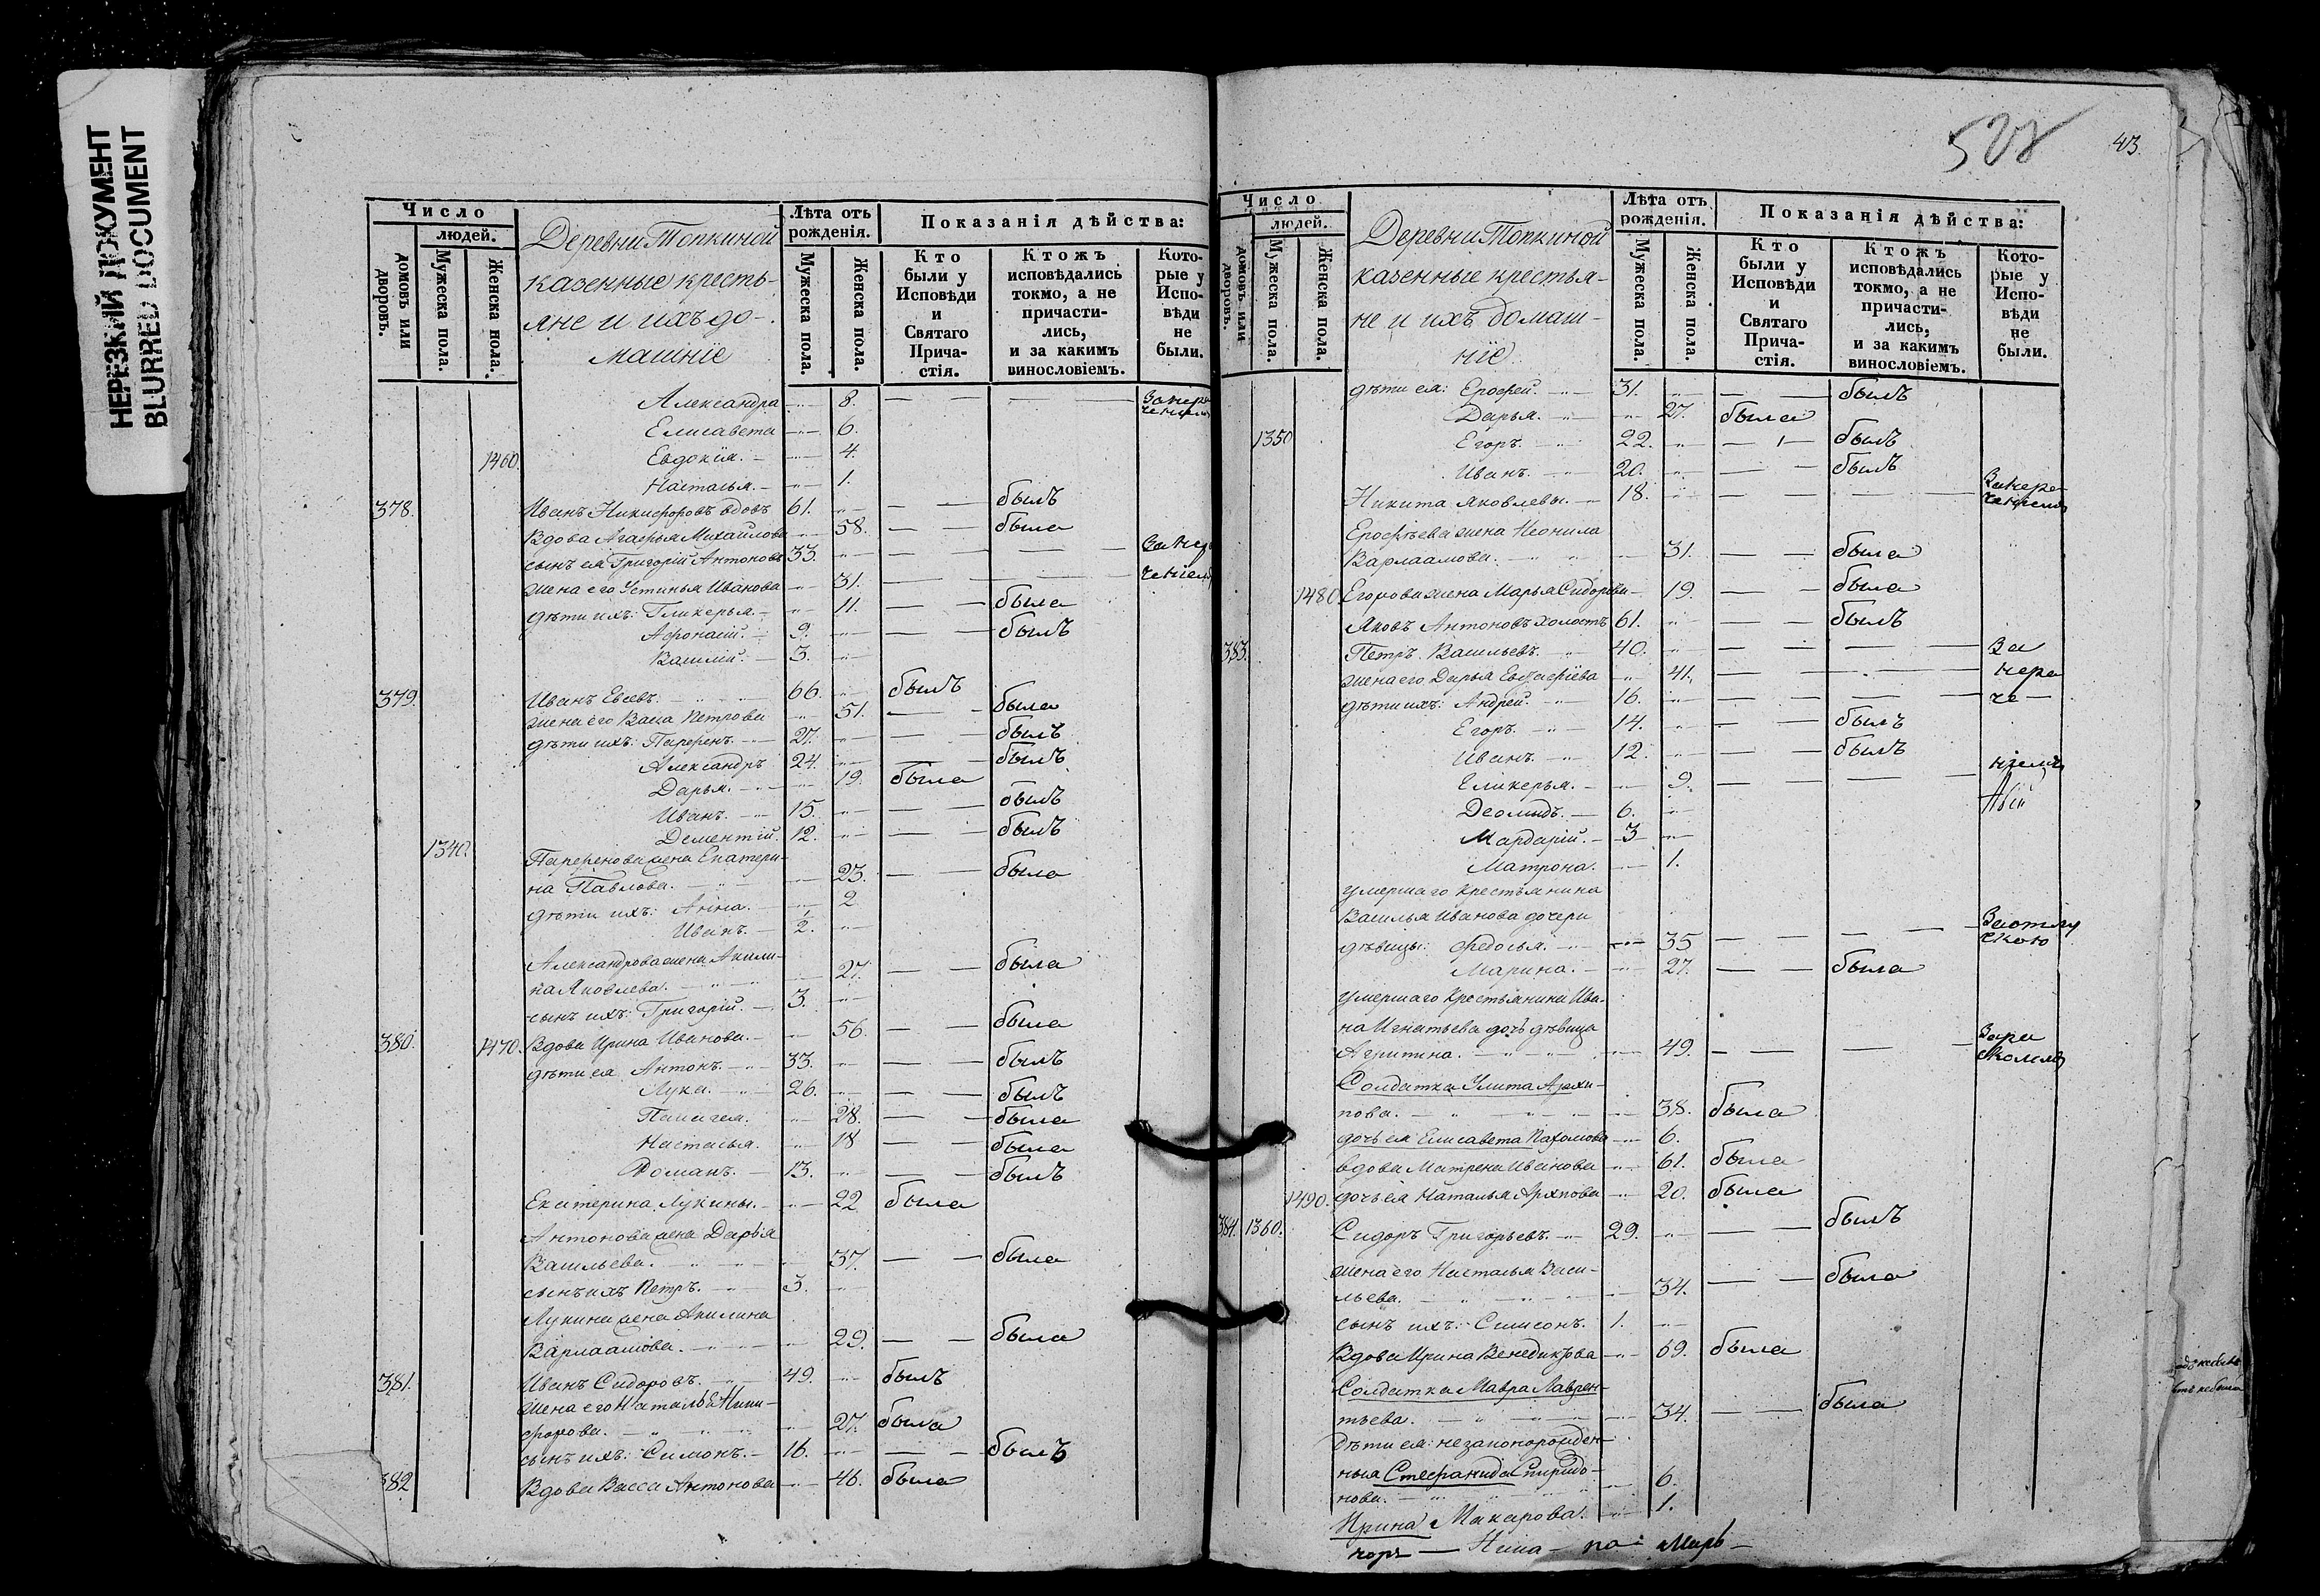 НЕРЕЗКИЙ ДОКУМЕНТ
BLURRED DOCUMENT
Число
людей.
домовъ или дворовъ.
Мужеска пола.
Женска пола.
Деревни Топкиной
казенные кресть-
яне и ихъ до-
машніе
Лѣта отъ рожденія.
Мужеска пола.
Женска пола.
Показанія дѣйства:
Кто были у Исповѣди и Святаго Прича-стія.
Ктожъ исповѣдались токмо, а не причасти-лись, и за какимъ винословіемъ.
Кото-рые у Испо-вѣди не были.
Александра 8.
Елисавета 6.
1460. Евдокія. 4.
Наталья. 1.
378. Иванъ Никифоровъ вдовъ 61. былъ
Вдова Агафья Михайлова 58. была
сынъ ея Григорій Антоновъ 33.
жена его Устинья Иванова 31.
дѣти ихъ: Гликерья. 11. была
Афонасій. 9. былъ
Василій. 3.
379. Иванъ Евсевъ. 66. былъ
жена его Васа Петрова 51. была
дѣти ихъ: Парфенъ. 27. былъ
Александръ 24. былъ
Дарья. 19. была
Иванъ. 15. былъ
1340. Дементій. 12. былъ
Парфенова жена Екатери-
на Павлова. 23. была
дѣти ихъ: Анна. 2
Иванъ. 1/2.
Александрова жена Акили-
на Яковлева. 27. была
сынъ ихъ: Григорій. 3.
380. 1470. Вдова Ирина Иванова. 56. была
дѣти ея Антонъ. 33. былъ
Лука. 26. былъ
Палагея. 28. была
Наталья. 18 была
Романъ. 13. былъ
Екатерина Лукины. 22. была
Антонова жена Дарья
Васильева. 37. была
сынъ ихъ Петръ. 3.
Лукина жена Акилина
Варлаамова. 29. была
381. Иванъ Сидоровъ. 49. былъ
жена его Наталья Ники-
форова. 27. была
сынъ ихъ: Симонъ. 16. былъ
382 Вдова Васса Антонова 46. была
528
43.
Число
людей.
домовъ или дворовъ.
Мужеска пола.
Женска пола.
Деревни Топкиной
казенные крестья-
не и ихъ домаш-
ніе
Лѣта отъ рожденія.
Мужеска пола.
Женска пола.
Показанія дѣйства:
Кто были у Исповѣди и Святаго Прича-стія.
Ктожъ исповѣдались токмо, а не причасти-лись, и за какимъ винословіемъ.
Кото-рые у Испо-вѣди не были.
дѣти ея: Ерофей. 31. былъ
Дарья. 27. была
1350 Егоръ. 22. былъ
Иванъ. 20. былъ
Никита Яковлевы. 18.
Ерофѣева жена Неонила
Варлаамова. 31. была
1480. Егорова жена Марья Сидорова 19. была
Яковъ Антоновъ холостъ 61. былъ
383. Петръ Васильевъ. 40. За
жена его Дарья Евстафіева 41. нера
дѣти ихъ: Андрей. 16. че
Егоръ. 14. былъ
Иванъ. 12. былъ
Гликерья. 9. ніемъ
6.
Мардарій. 3
Матрона. 1.
умершаго крестьянина
Василья Иванова дочери
дѣвицы: Федосья. 35 За отлу
чкою
Марина. 27. была
умершаго крестьянина Ива-
на Игнатьева дочь дѣвица
Агрипина. 49. За ра
сколомъ
Солдатка Улита Архи-
пова. 38. была
дочь ея Елисавета Пахомова 6.
вдова Матрена Иванова 61. была
1490. дочь ея Наталья Архипова 20. была
384. 1360. Сидоръ Григорьевъ. 29. былъ
жена его Наталья Васи-
льева. 34. была
сынъ ихъ: Симеонъ. 1.
Вдова Ирина Венедиктова 69. была
Солдатка Мавра Лаврен-
тьева. 34. была
Дѣти ея: незаконорожден-
ныя Стефанида Спиридо-
нова. 6.
Ирина Макарова. 1.